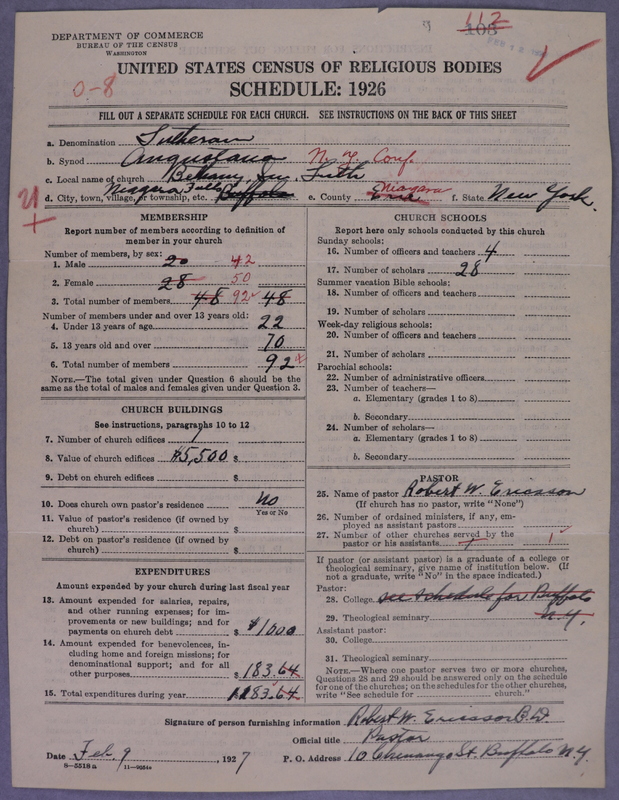 DEPARTMENT OF COMMERCE
BUREAU OF THE CENSUS
WASHINGTON
112
108
FEB 12
0-8
UNITED STATES CENSUS OF RELIGIOUS BODIES
SCHEDULE: 1926
FILL OUT A SEPARATE SCHEDULE FOR EACH CHURCH. SEE INSTRUCTIONS ON THE BACK OF THIS SHEET
a. Denomination Lutheran
b. Synod Augustana N. Y. Conf.
c. Local name of church Bethany Luth
d. City, town, village, or township, etc. Niagara Falls Buffalo e. County Erie Niagara f. State New York.
MEMBERSHIP
Report number of members according to definition of member in your church
Number of members, by sex:
1. Male 20 42
2. Female 28 50
3. Total number of members 48 92 48
Number of members under and over 13 years old:
4. Under 13 years of age 22
5. 13 years old and over 70
6. Total number of members 92
NOTE.—The total given under Question 6 should be the same as the total of males and females given under Question 3.
CHURCH BUILDINGS
See instructions, paragraphs 10 to 12
7. Number of church edifices 1
8. Value of church edifices $5,500 $
9. Debt on church edifices $
10. Does church own pastor's residence No
Yes or No
11. Value of pastor's residence (if owned by church) $
12. Debt on pastor's residence (if owned by church) $
EXPENDITURES
Amount expended by your church during last fiscal year
13. Amount expended for salaries, repairs, and other running expenses; for improvements or new buildings; and for payments on church debt $1000
14. Amount expended for benevolences, including home and foreign missions; for denominational support; and for all other purposes $183.64
15. Total expenditures during year 1183.64
CHURCH SCHOOLS
Report here only schools conducted by this church
Sunday schools:
16. Number of officers and teachers 4
17. Number of scholars 28
Summer vacation Bible schools:
18. Number of officers and teachers
19. Number of scholars
Week-day religious schools:
20. Number of officers and teachers
21. Number of scholars
Parochial schools:
22. Number of administrative officers
23. Number of teachers—
a. Elementary (grades 1 to 8)
b. Secondary
24. Number of scholars—
a. Elementary (grades 1 to 8)
b. Secondary
PASTOR
25. Name of pastor Robert W. Ericsson
(If church has no pastor, write "None")
26. Number of ordained ministers, if any, employed as assistant pastors
27. Number of other churches served by the pastor or his assistants 1 1
If pastor (or assistant pastor) is a graduate of a college or theological seminary, give name of institution below. (If not a graduate, write "No" in the space indicated.)
Pastor:
28. College see schedule for Buffalo
29. Theological seminary N.Y.
Assistant pastor:
30. College
31. Theological seminary
NOTE.—Where one pastor serves two or more churches, Questions 28 and 29 should be answered only on the schedule for one of the churches; on the schedules for the other churches, write "See schedule for church."
Signature of person furnishing information Robert W. Ericsson
Official title Pastor
Date Feb. 9, 1927 P. O. Address 10 Chenango St. Buffalo N.Y.
8-5518a 11-9254